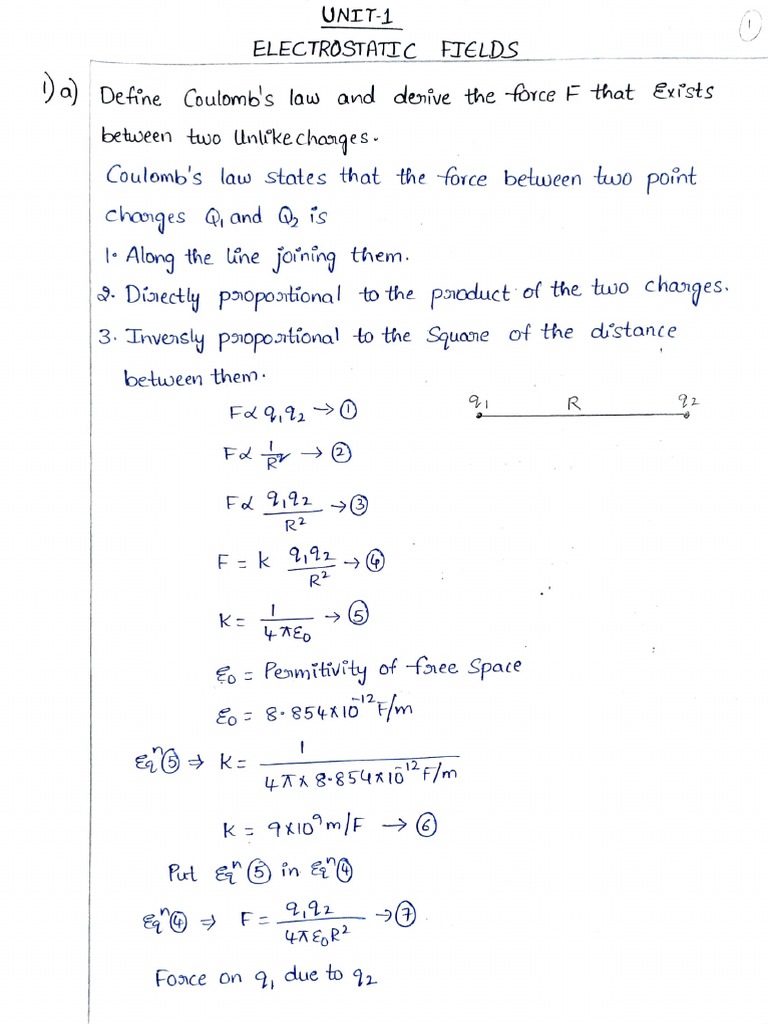 UNIT-1
1
ELECTROSTATIC FIELDS
1)a) Define Coulomb's law and derive the force F that Exists
between two Unlike charges.
Coulomb's law states that the force between two point
charges Q₁ and Q₂ is
1. Along the line joining them.
2. Directly propostional to the product of the two charges.
3. Inversly propostional to the Square of the distance
between them.
F∝ q₁q₂ → ①
q₁ R q₂
F∝ 1/R² → ②
F∝ q₁q₂/R² → ③
F = k q₁q₂/R² → ④
K = 1/4πε₀ → ⑤
ε₀ = Permitivity of free Space
ε₀ = 8.854×10⁻¹² F/m
Eqⁿ⑤ ⇒ K = 1/4π × 8.854×10⁻¹² F/m
K = 9×10⁹ m/F → ⑥
Put Eqⁿ⑤ in Eqⁿ④
Eqⁿ④ ⇒ F = q₁q₂/4πε₀R² → ⑦
Force on q₁ due to q₂